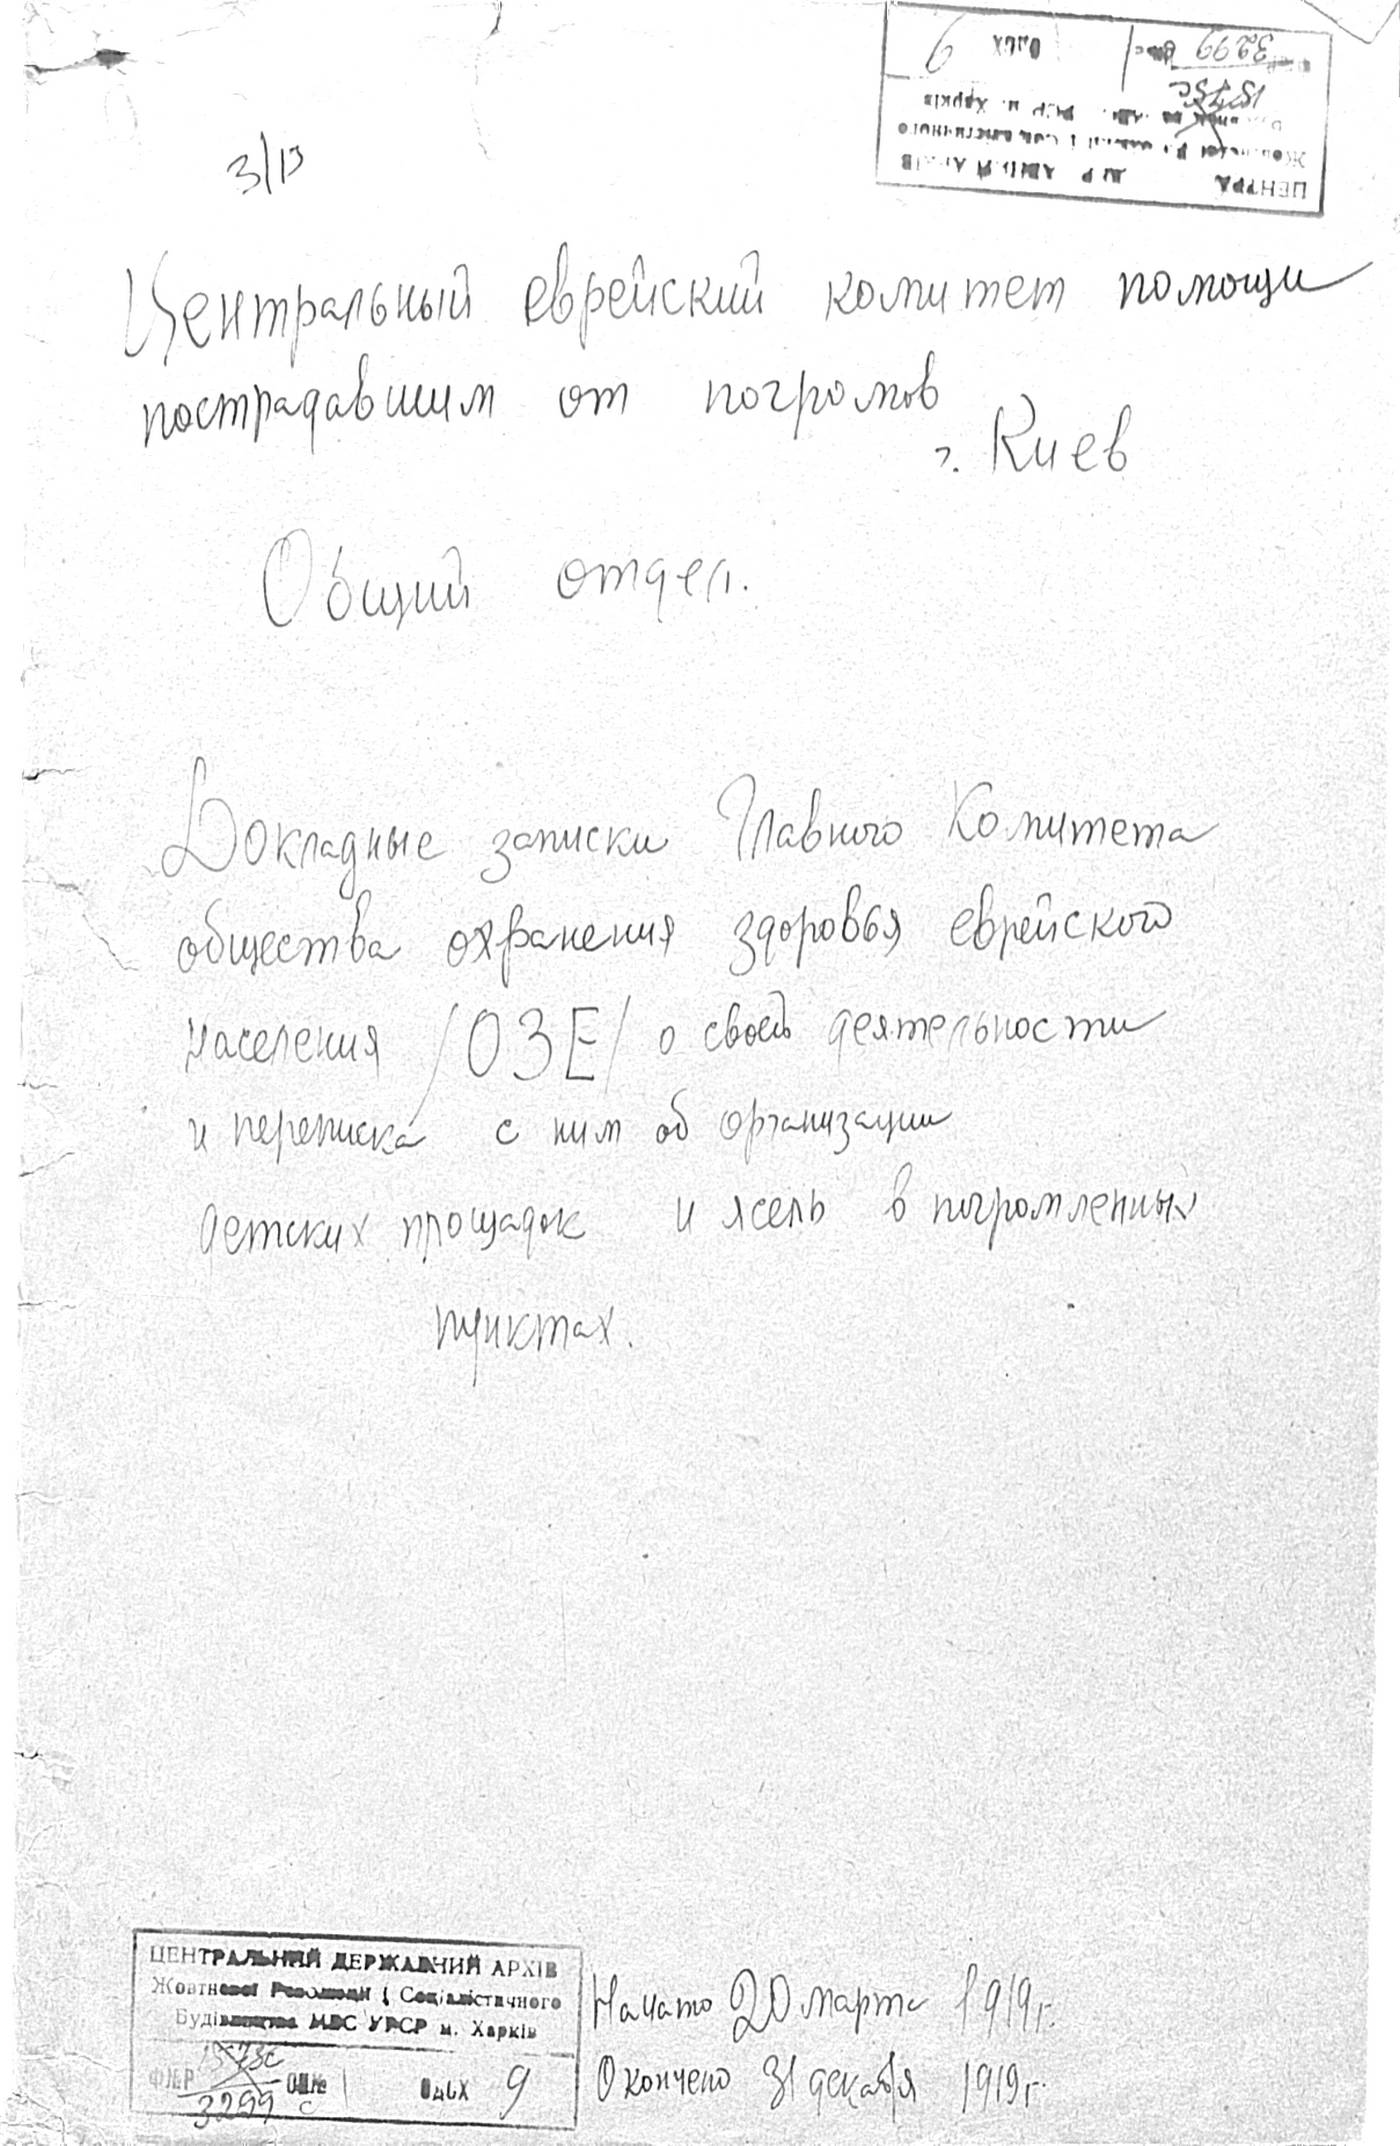 ЦЕНТРА
Харків
ОдбХ 9
3299
3/13
Центральный еврейский комитет помощи
пострадавшим от погромов
г. Киев
Общий отдел.
Докладные записки Главного Комитета
общества охранения здоровья еврейского
населения /ОЗЕ/ о своей деятельности
и переписка с ним об организации
детских площадок и ясель в погромленных
пунктах.
ЦЕНТРАЛЬНИЙ ДЕРЖАВНИЙ АРХІВ
Жовтневої Революції і Соціалістичного
Будівництва МВС УРСР м. Харків
1573с
3299 ОдбХ 9
Начато 20 марта 1919 г.
Окончено 31 декабря 1919 г.